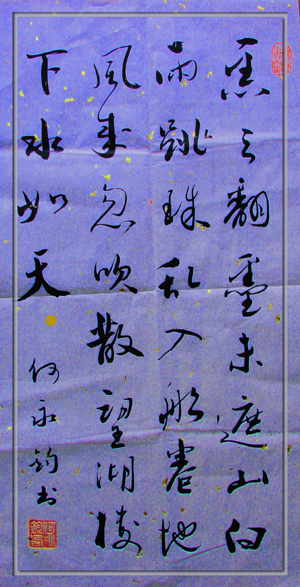 黑云翻墨未遮山白
雨跳珠乱入船卷地
風来忽吹散望湖楼
下水如天
何永钧书